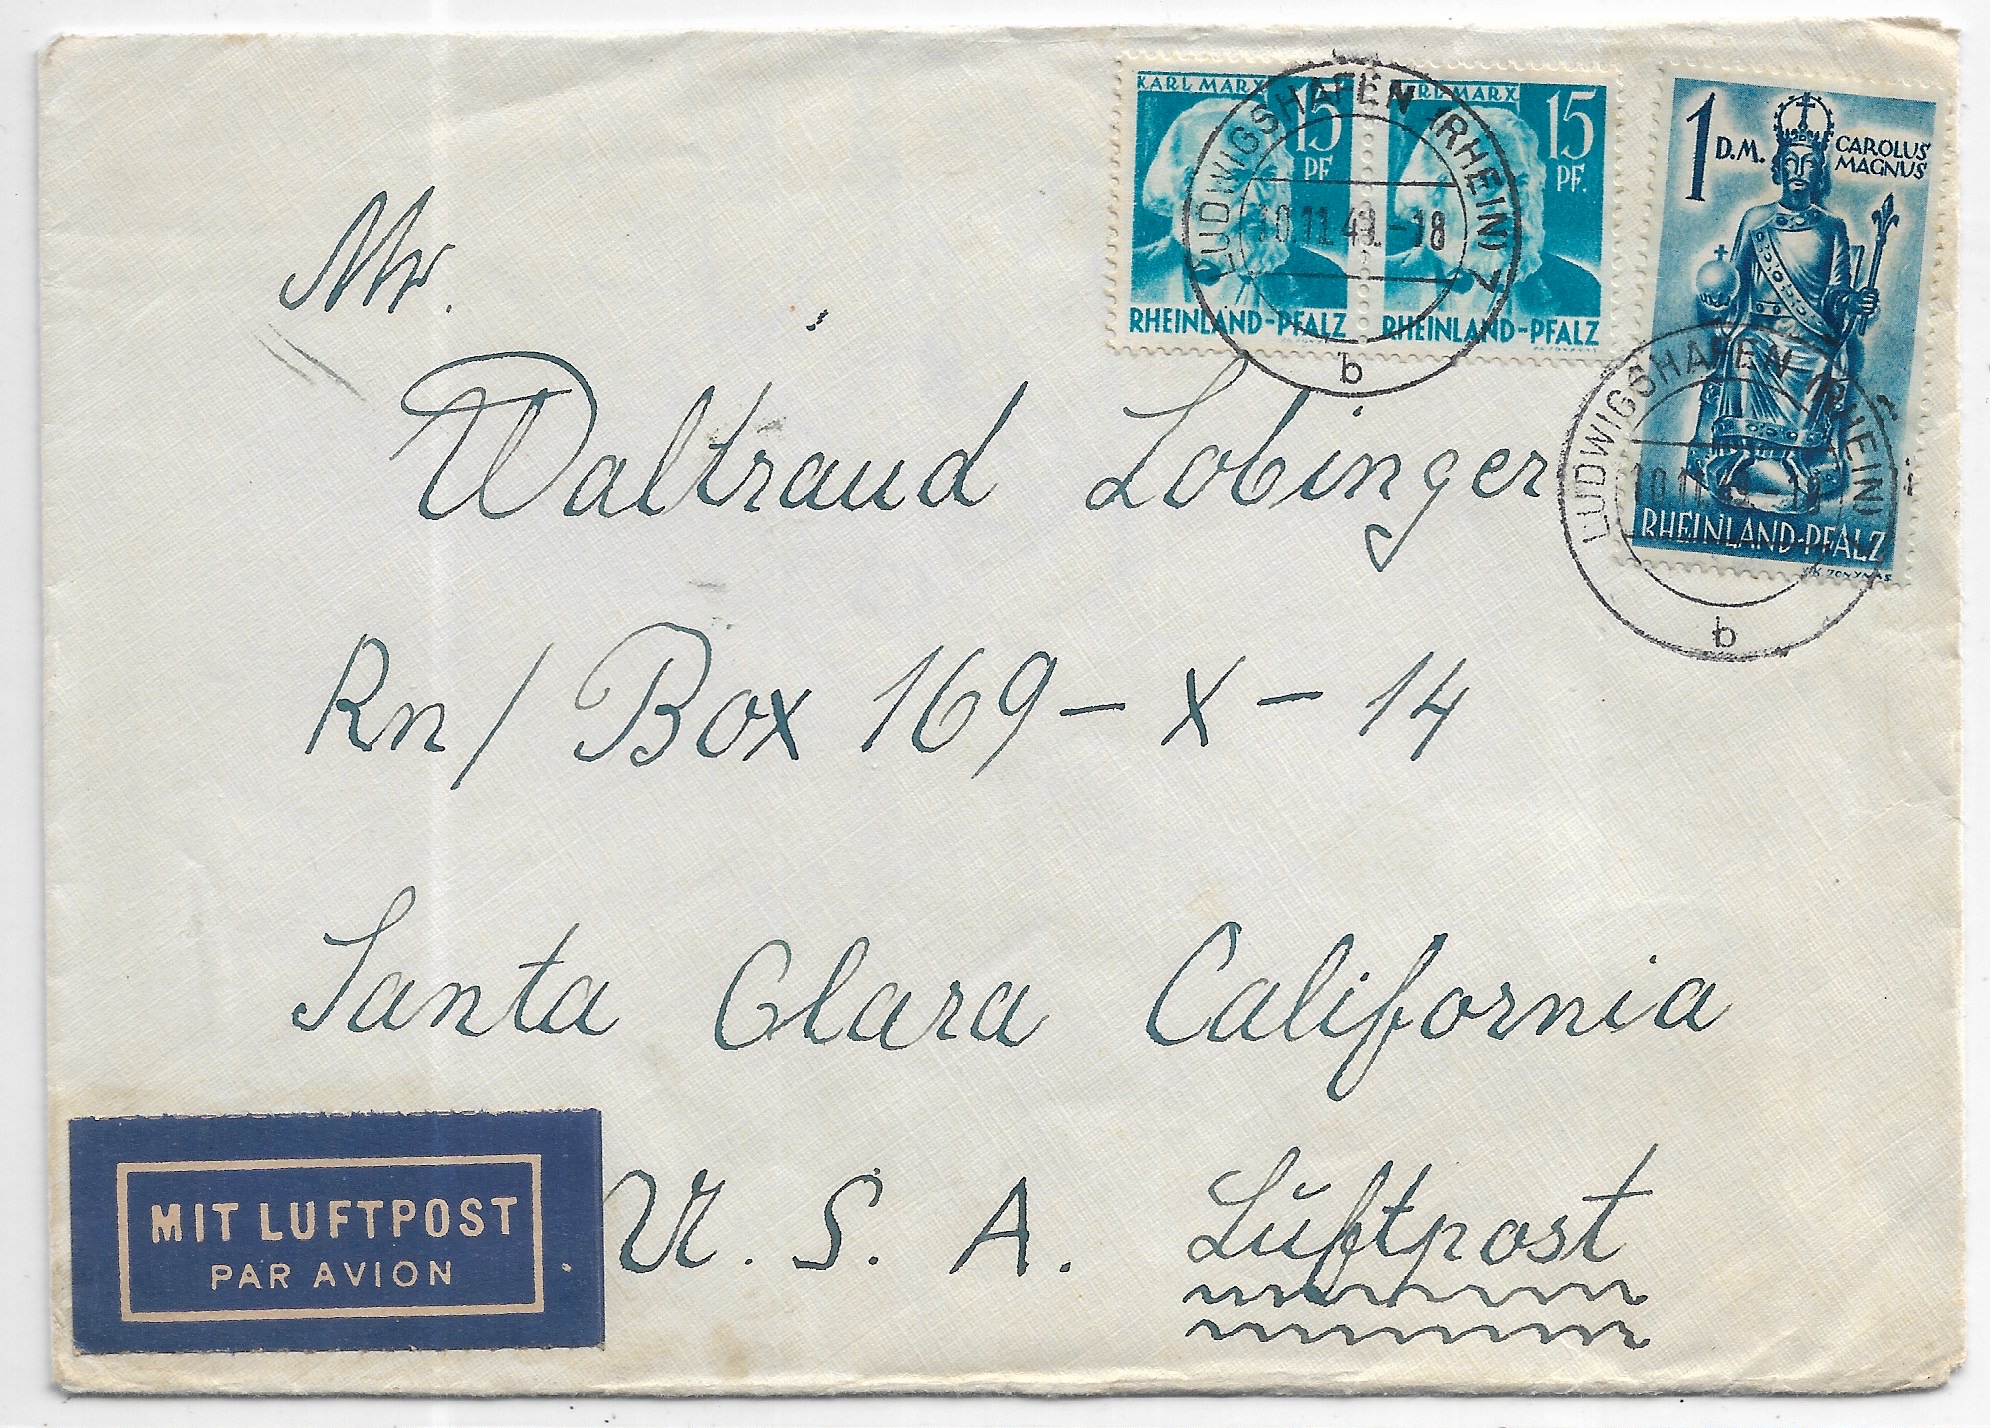 KARL MARX 15 PF. RHEINLAND-PFALZ
KARL MARX 15 PF. RHEINLAND-PFALZ
1 D.M. CAROLUS MAGNUS
RHEINLAND-PFALZ
LUDWIGSHAFEN (RHEIN) 7
10.11.49.-18
b
LUDWIGSHAFEN (RHEIN) 7
10.11.49.-18
b
Mr.
Waltraud Lobinger
Rn/ Box 169 - X - 14
Santa Clara California
U. S. A. Luftpost
MIT LUFTPOST
PAR AVION